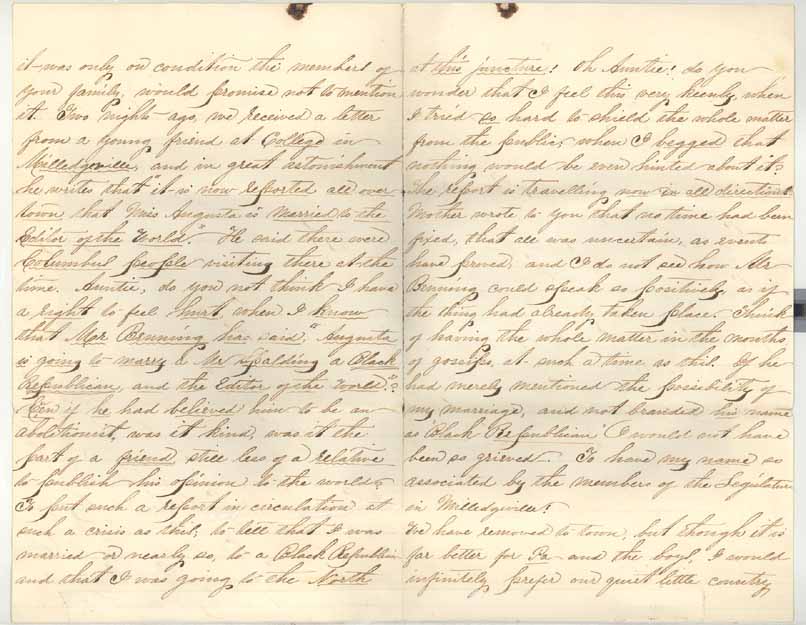 it was only on condition the members of
your family, would promise not to mention
it. Two nights ago, we received a letter
from a young friend at College in
Milledgeville, and in great astonishment
he writes that "it is now reported all over
town that Miss Augusta is married to the
Editor of the World." He said there were
Columbus people visiting there at the
time. Auntie, do you not think I have
a right to feel hurt, when I know
that Mr Benning has said, "Augusta
is going to marry a Mr Spalding a Black
Republican, and the Editor of the World."?
Even if he had believed him to be an
abolitionist, was it kind, was it the
part of a friend still less of a relative
to publish his opinion to the world?
To put such a report in circulation at
such a crisis as this; to tell that I was
married or nearly so, to a Black Republican
and that I was going to the North
at this juncture! Oh Auntie! do you
wonder that I feel this very keenly, when
I tried so hard to shield the whole matter
from the public, when I begged that
nothing would be even hinted about it?
The report is travelling now in all directions.
Mother wrote to you that no time had been
fixed, that all was uncertain, as events
have proved, and I do not see how Mr
Benning could speak so positively, as if
the thing had already taken place. Think
of having the whole matter in the mouths
of gossips, at such a time as this. If he
had merely mentioned the possibility of
my marriage, and not branded his name
as 'Black Republican' I would not have
been so grieved. To have my name so
associated by the members of the Legislature
in Milledgeville!
We have removed to town, but though it is
far better for Pa and the boys, I would
infinitely prefer our quiet little country